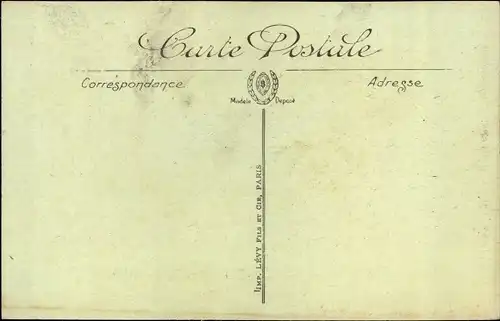 Carte Postale
Correspondance
Adresse
Modèle Déposé
IMP. LÉVY FILS ET CIE, PARIS